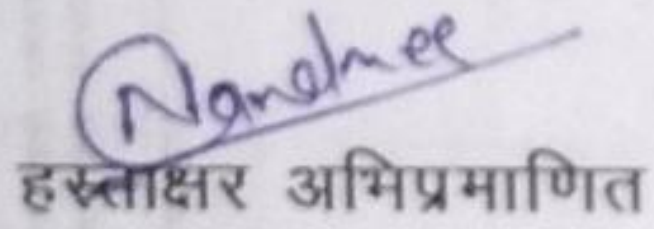 Nandnee
हस्ताक्षर अभिप्रमाणित